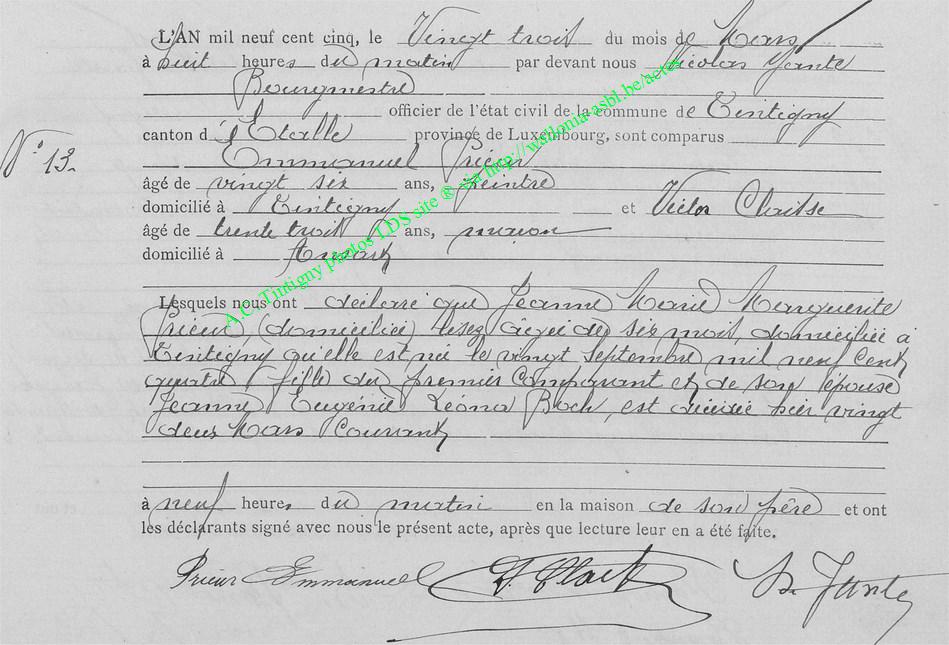 L'AN mil neuf cent cinq, le Vingt trois du mois de Mars
à huit heures du matin par devant nous Nicolas Yante
Bourgmestre
officier de l'état civil de la commune de Tintigny
canton d'Etalle province de Luxembourg, sont comparus
N° 13.
Emmanuel Prieur
âgé de vingt six ans, peintre
domicilié à Tintigny et Victor
âgé de trente trois ans, maçon
domicilié à Ansart
Lesquels nous ont déclaré que Jeanne Marie Marguerite
Prieur, (domiciliée) lisez âgée de six mois, domiciliée à
Tintigny qu'elle est née le vingt septembre mil neuf Cent
quatre fille du premier Comparant et de son épouse
Jeanne Eugénie Léona Boch, est décédée hier vingt
deux Mars Courant
à neuf heures du matin en la maison de son père et ont
les déclarants signé avec nous le présent acte, après que lecture leur en a été faite.
Prieur Emmanuel
A.C. Tintigny photos LDS site ® via http://wallonia-asbl.be/actes